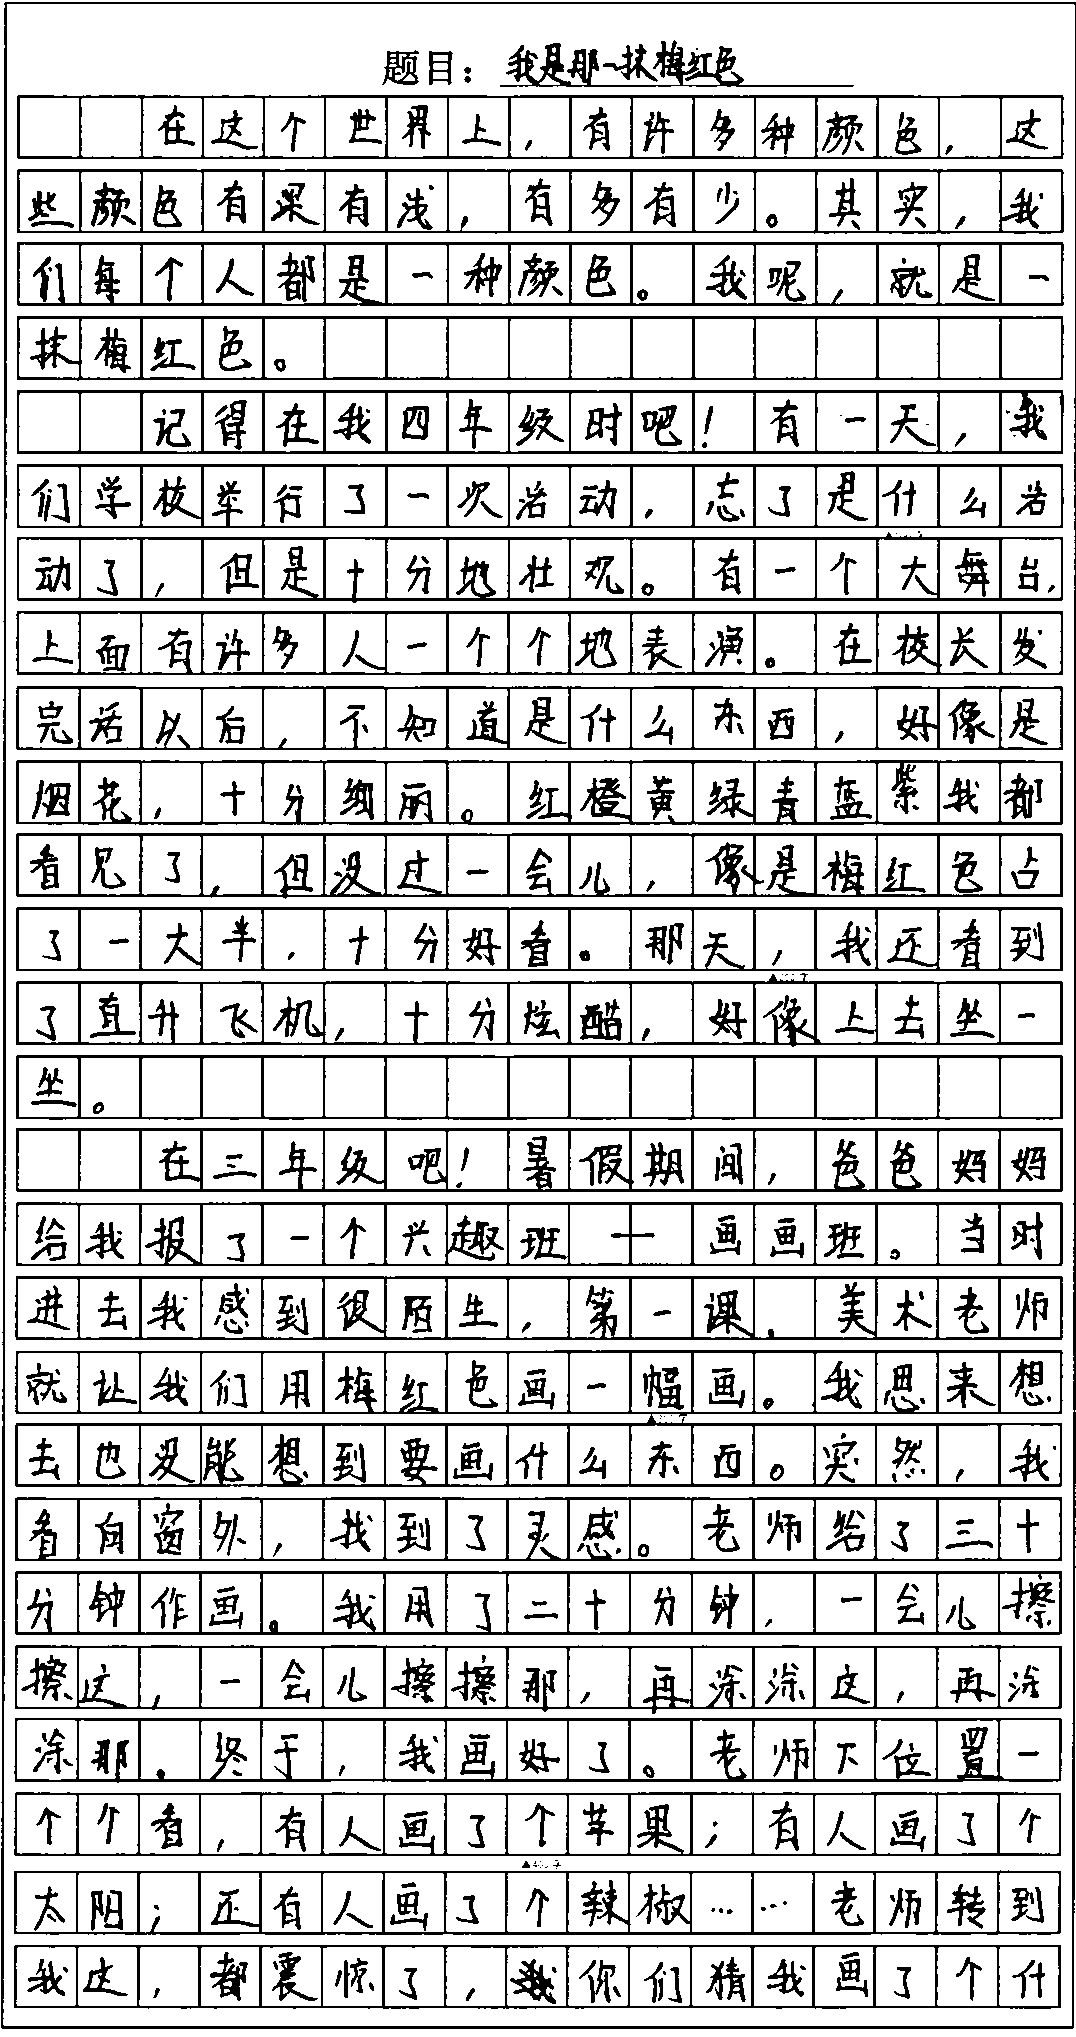 题目：我是那一抹梅红色
在这个世界上，有许多种颜色，这
些颜色有深有浅，有多有少。其实，我
们每个人都是一种颜色。我呢，就是一
抹梅红色。
记得在我四年级时吧！有一天，我
们学校举行了一次活动，忘了是什么活
动了，但是十分地壮观。有一个大舞台，
上面有许多人一个个地表演。在校长发
完话以后，不知道是什么东西，好像是
烟花，十分绚丽。红橙黄绿青蓝紫我都
看见了，但没过一会儿，像是梅红色占
了一大半，十分好看。那天，我还看到
了直升飞机，十分炫酷，好像上去坐一
坐。
在三年级吧！暑假期间，爸爸妈妈
给我报了一个兴趣班——画画班。当时
进去我感到很陌生，第一课，美术老师
就让我们用梅红色画一幅画。我思来想
去也没能想到要画什么东西。突然，我
看向窗外，找到了灵感。老师给了三十
分钟作画。我用了二十分钟，一会儿擦
擦这，一会儿擦擦那，再涂涂这，再涂
涂那。终于，我画好了。老师下位置一
个个看，有人画了个苹果；有人画了个
太阳；还有人画了个辣椒……老师转到
我这，都震惊了，你们猜我画了个什